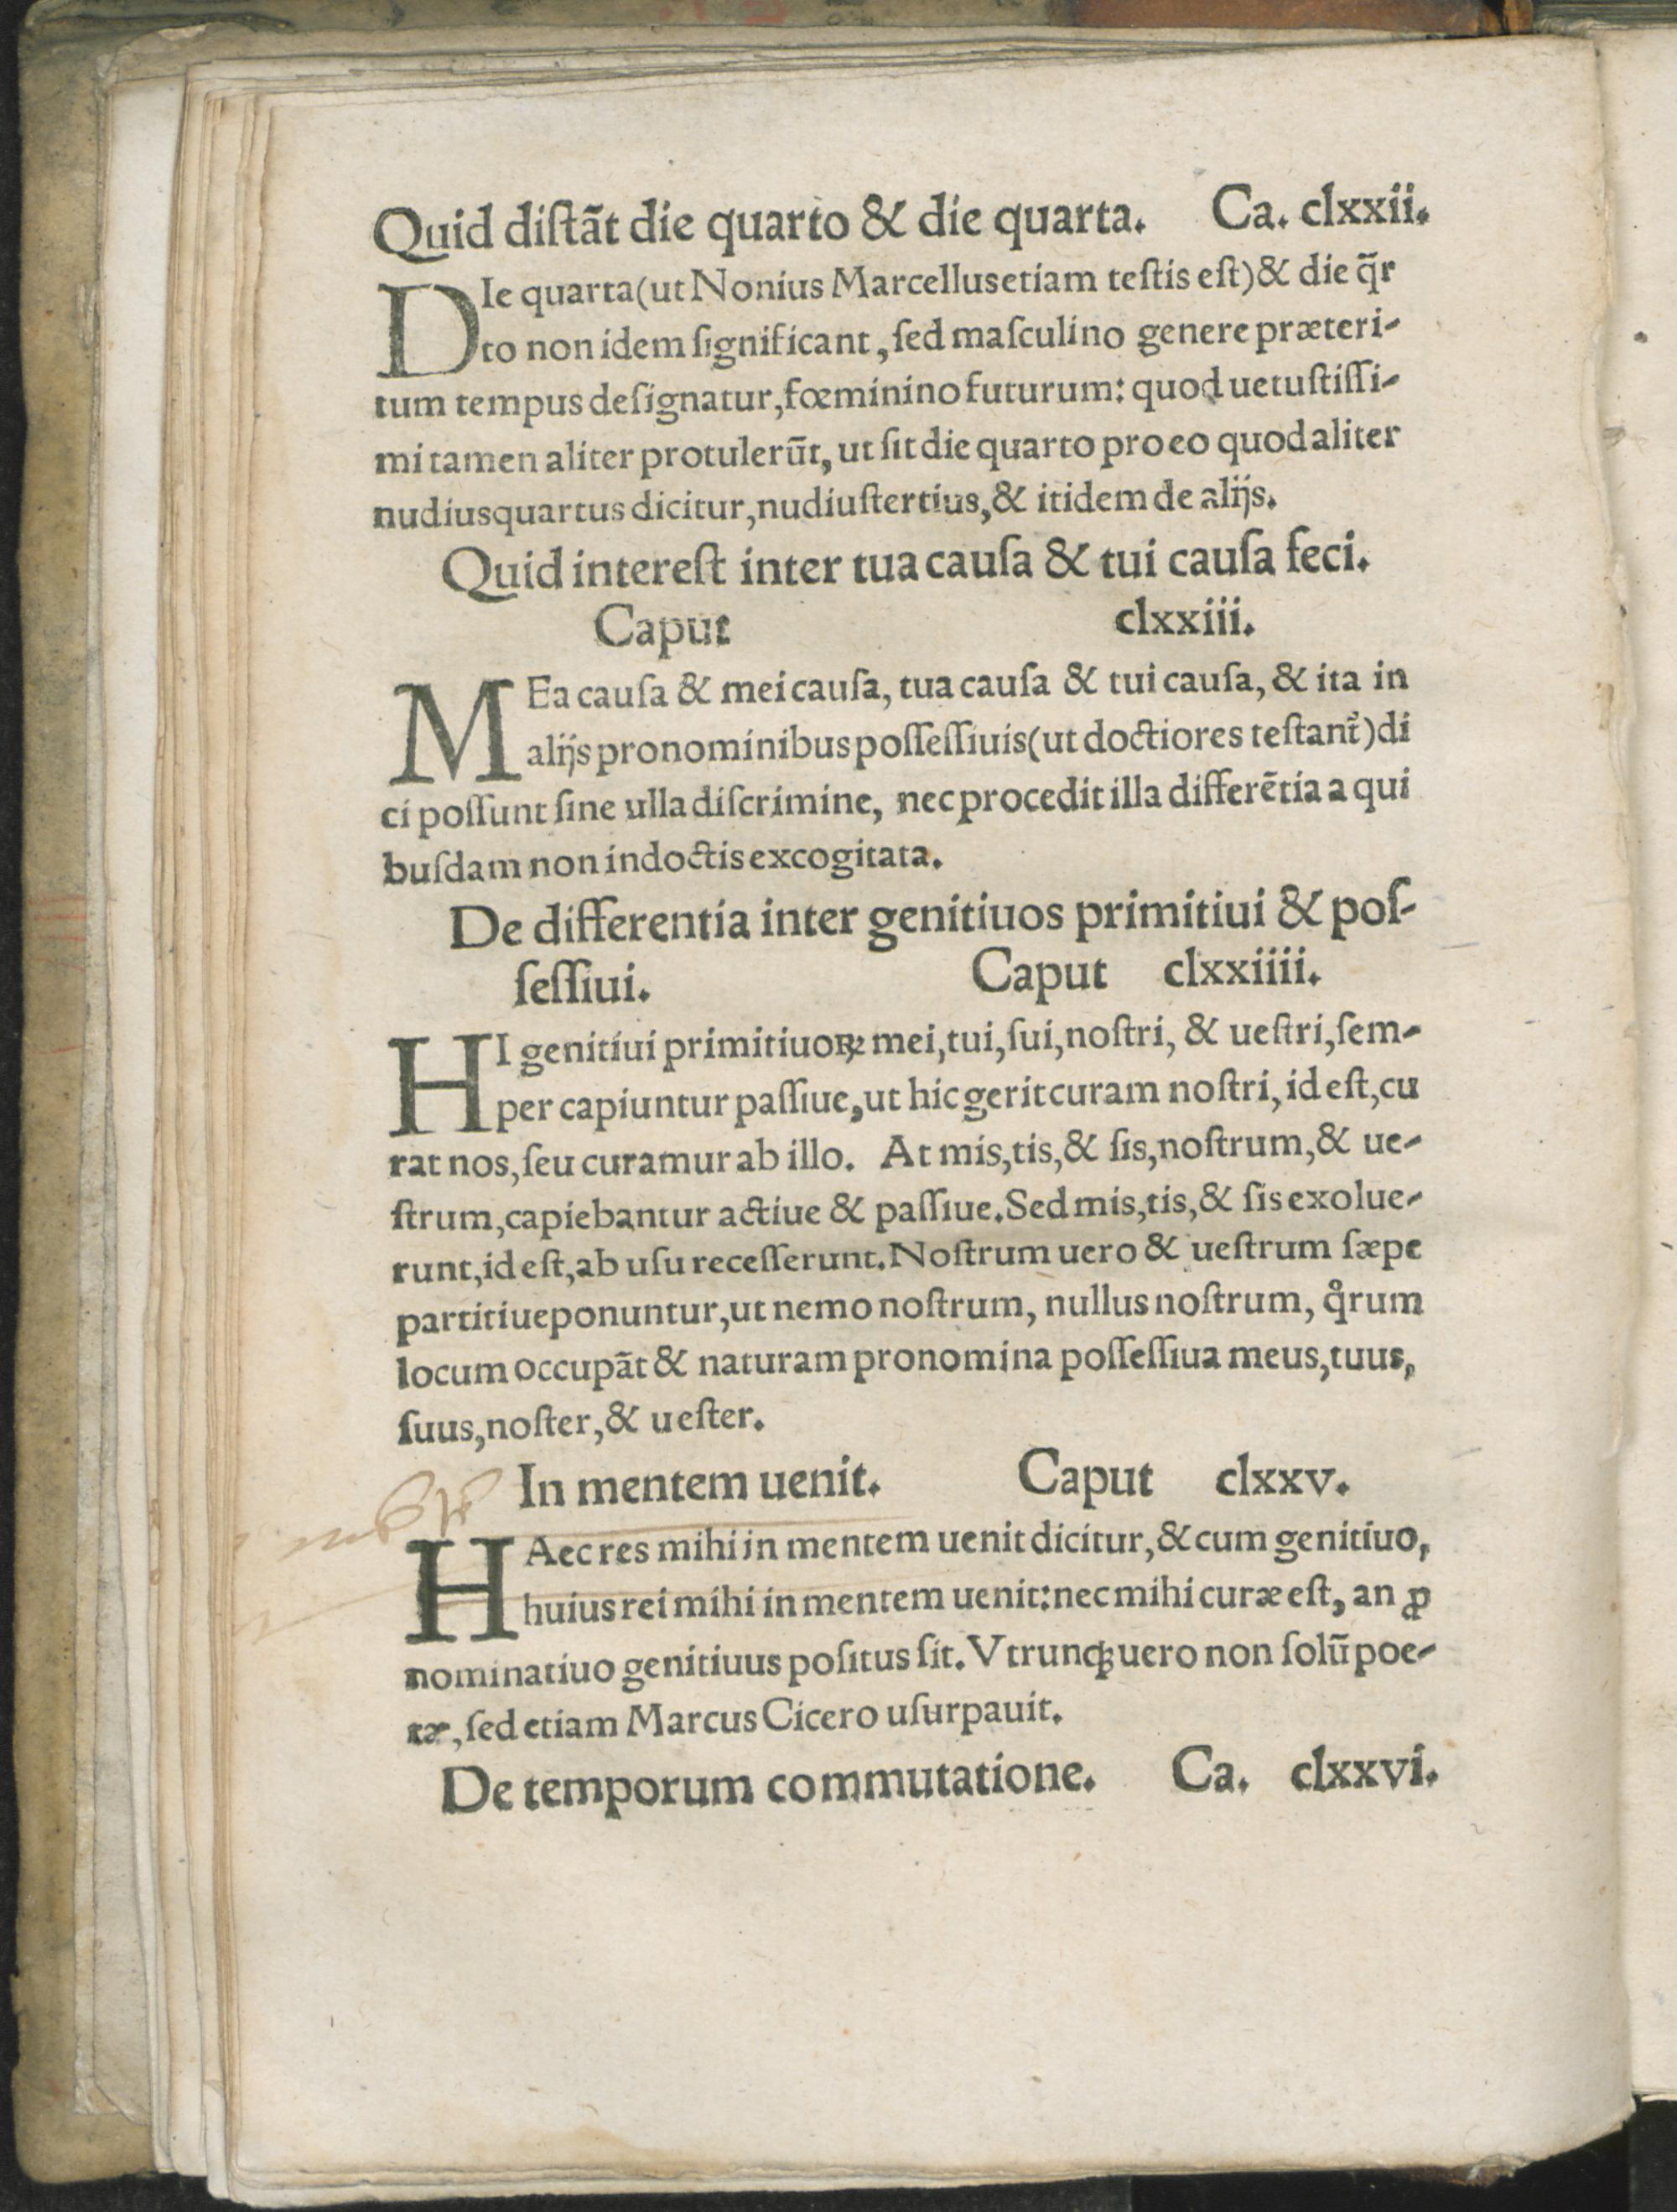 Quid diſtãt die quarto & die quarta. Ca. clxxii.
DIe quarta (ut Nonius Marcellus etiam teſtis eſt) & die q̃r
to non idem ſignificant, ſed maſculino genere præteri-
tum tempus deſignatur, fœminino futurum: quod uetuſtiſſi-
mi tamen aliter protulerũt, ut ſit die quarto pro eo quod aliter
nudiusquartus dicitur, nudiuſtertius, & itidem de alijs.
Quid intereſt inter tua cauſa & tui cauſa feci.
Caput clxxiii.
MEa cauſa & mei cauſa, tua cauſa & tui cauſa, & ita in
alijs pronominibus poſſeſſiuis (ut doctiores teſtant᷑) di
ci poſſunt ſine ulla diſcrimine, nec procedit illa differẽtia a qui
buſdam non indoctis excogitata.
De differentia inter genitiuos primitiui & poſ-
ſeſſiui. Caput clxxiiii.
HI genitiui primitiuoꝝ mei, tui, ſui, noſtri, & ueſtri, ſem-
per capiuntur paſſiue, ut hic gerit curam noſtri, id eſt, cu
rat nos, ſeu curamur ab illo. At mis, tis, & ſis, noſtrum, & ue-
ſtrum, capiebantur actiue & paſſiue. Sed mis, tis, & ſis exolue-
runt, id eſt, ab uſu receſſerunt. Noſtrum uero & ueſtrum ſæpe
partitiue ponuntur, ut nemo noſtrum, nullus noſtrum, qͦrum
locum occupãt & naturam pronomina poſſeſſiua meus, tuus,
ſuus, noſter, & ueſter.
In mentem uenit. Caput clxxv.
HAec res mihi in mentem uenit dicitur, & cum genitiuo,
huius rei mihi in mentem uenit: nec mihi curæ eſt, an ꝓ
nominatiuo genitiuus poſitus ſit. Vtrunqꝫ uero non ſolũ poe-
tæ, ſed etiam Marcus Cicero uſurpauit.
De temporum commutatione. Ca. clxxvi.